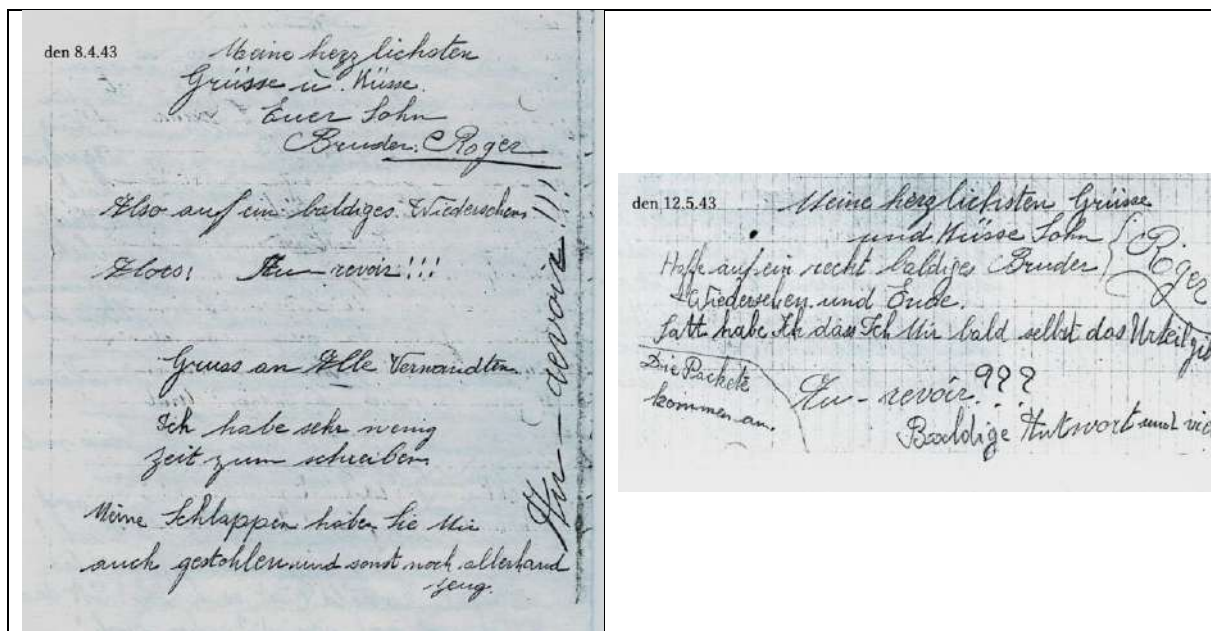 den 8.4.43
Meine herzlichsten
Grüsse u. Küsse.
Euer Sohn
Bruder. Roger
Also auf ein baldiges Wiedersehen
Alors! Au-revoir!!!
Gruss an Alle Verwandten
Ich habe sehr wenig
Zeit zum schreiben
Meine Schlappen haben Sie Mir
auch gestohlen und sonst noch allerhand
zeug.
Au-revoir!!!
den 12.5.43
Meine herzlichsten Grüsse
und Küsse Sohn
Bruder
Roger
Hoffe auf ein recht baldiges
Wiedersehen und Ende.
Satt habe Ich dass Ich Mir bald selbst das Urteil
Die Packete
kommen an.
Au-revoir???
Baldige Antwort und